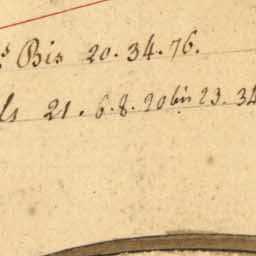 s Bis 20. 34. 76.
ls 21. 6. 8. 20 bis 23. 34